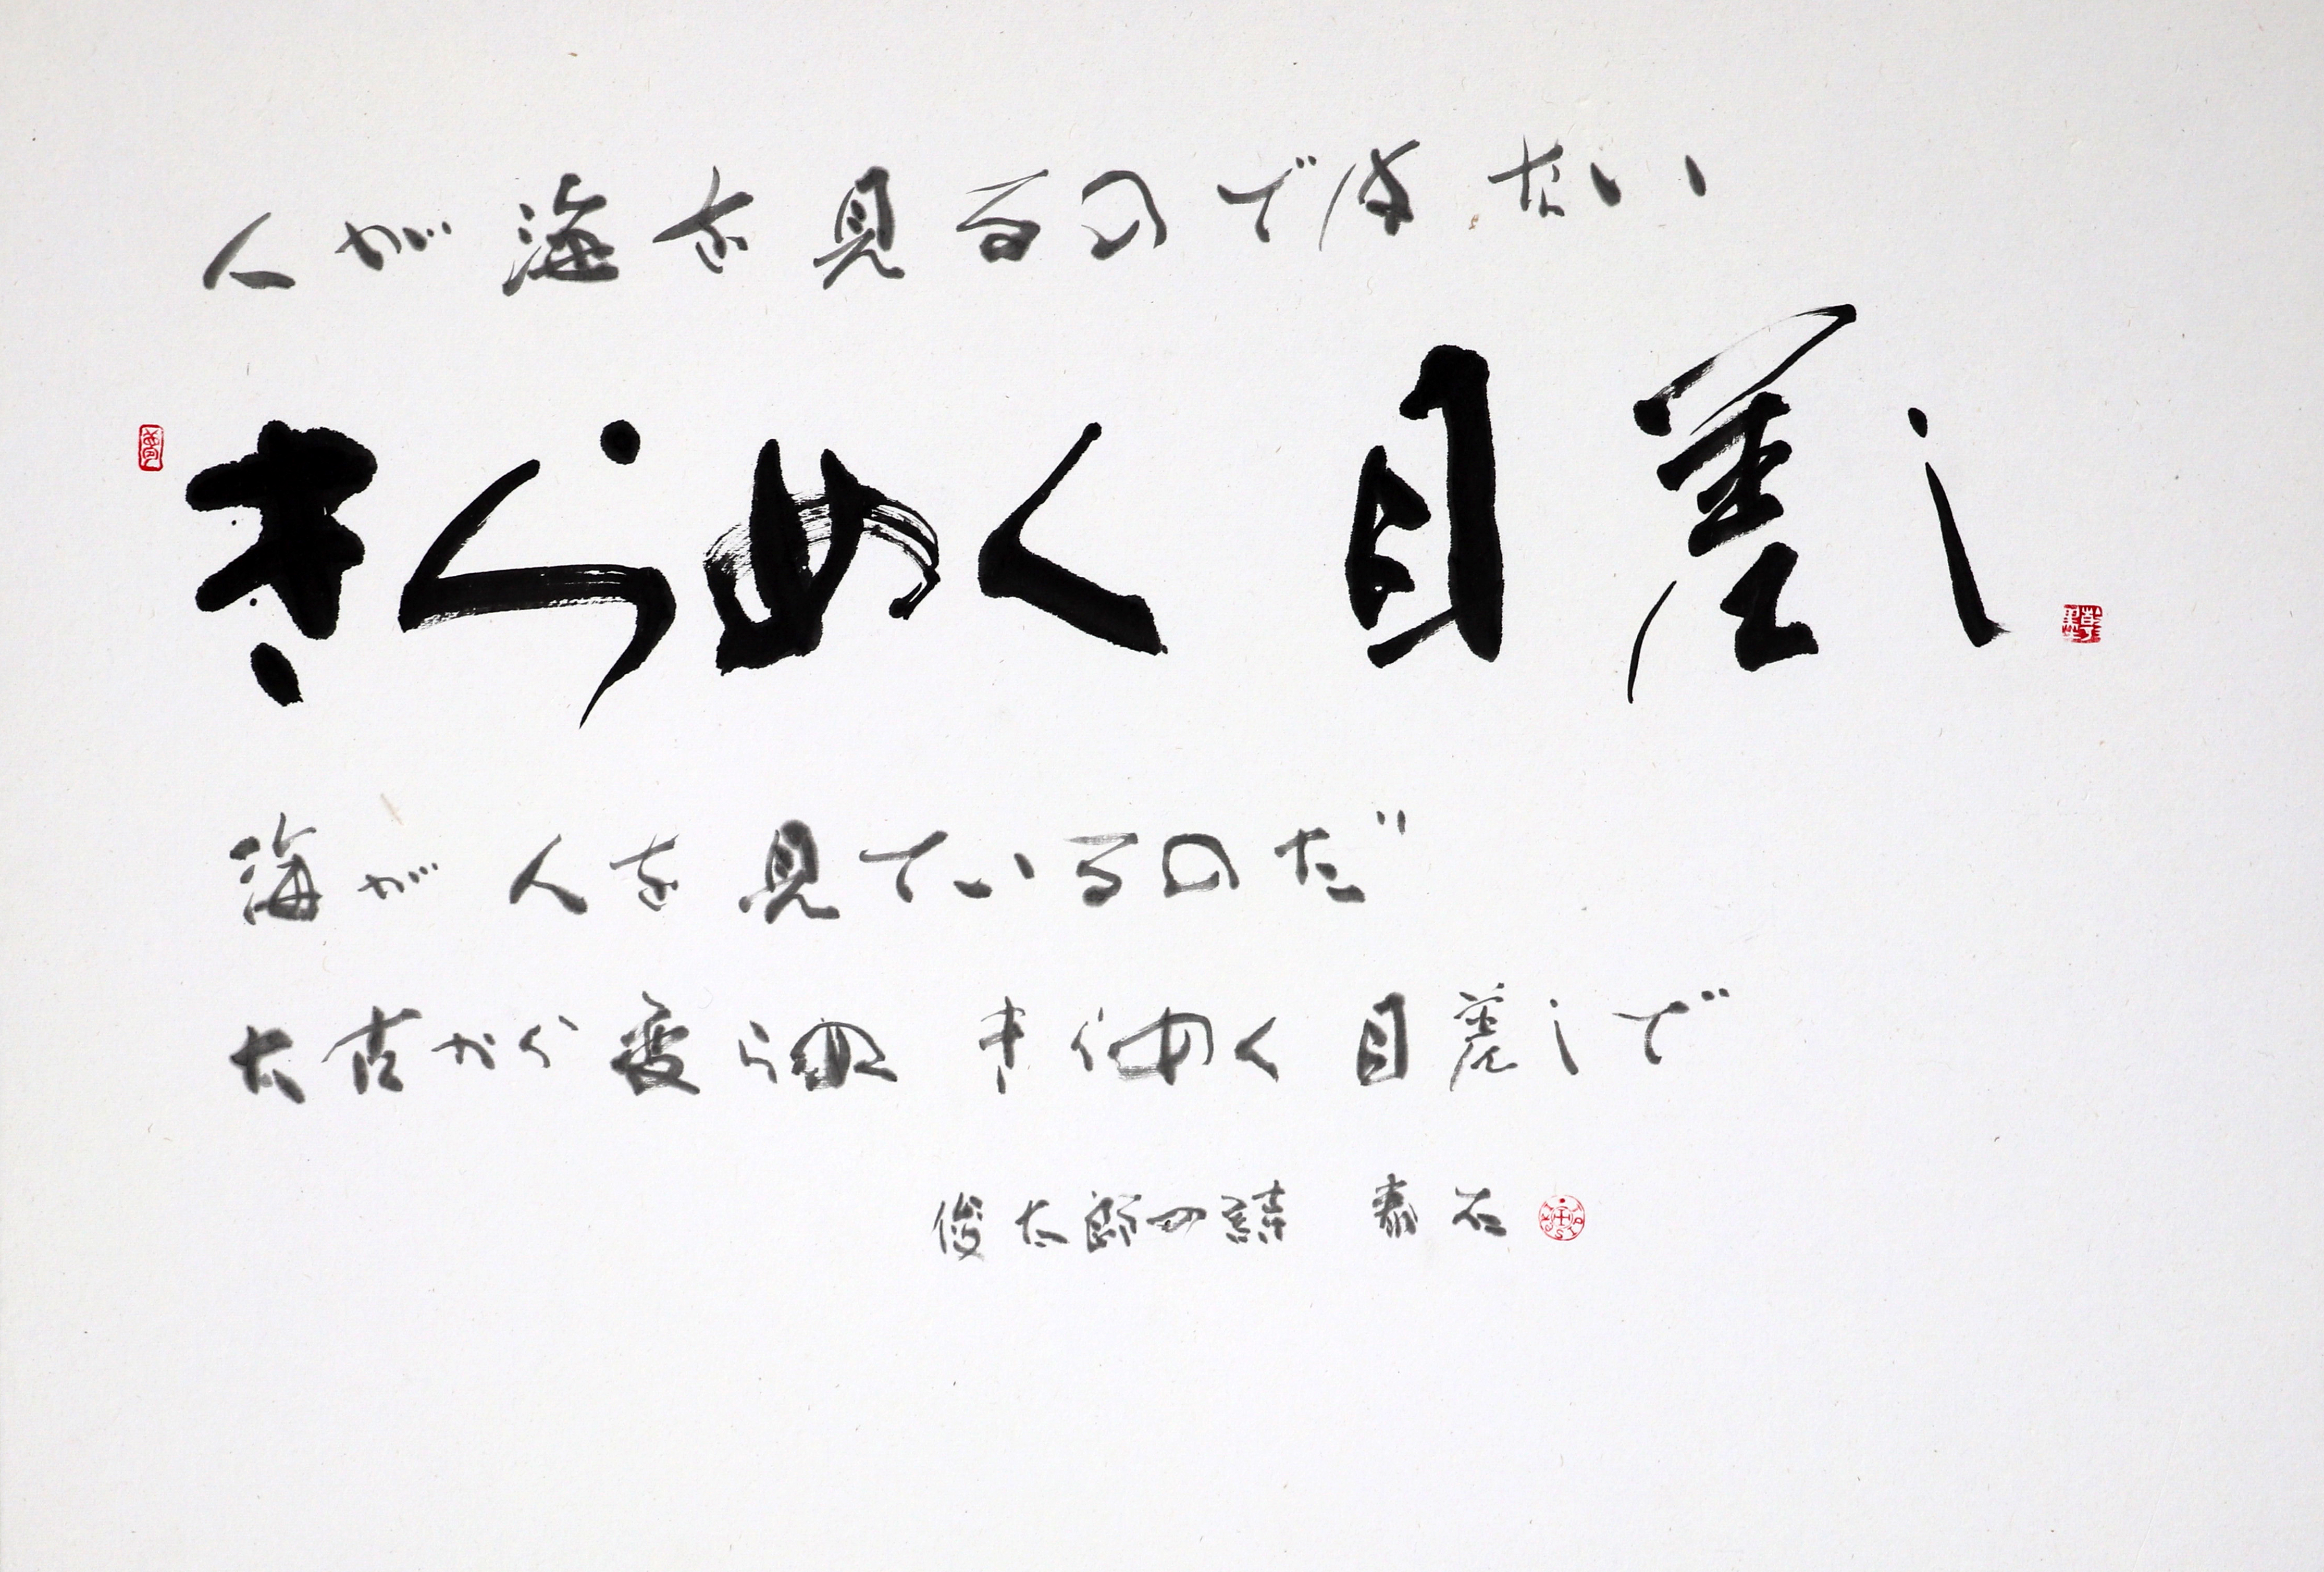 人が海を見るのではない
きらめく目差し
海が人を見ているのだ
太古から変らぬきらめく目差しで
俊太郎の詩 泰石